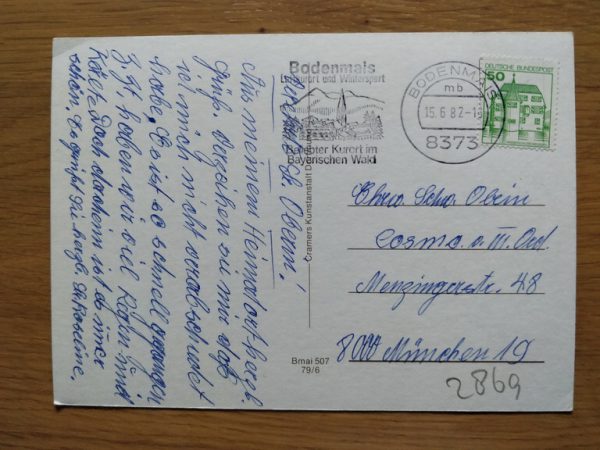 Bodenmais
Luftkurort und Wintersport
Beliebter Kurort im
Bayerischen Wald
BODENMAIS
mb
15.6.82-1
8373
DEUTSCHE BUNDESPOST
50
Oberin!
Aus meinem Heimatort herzl.
Grüße. Verzeihen Sie mir daß
ich mich nicht verabschiedet
habe. Es ist so schnell gegangen
Z. Zt. haben wir viel Regen und
Kälte. Doch daheim ist es immer
schön. Es grüßt Sie herzl.
Cramers Kunstanstalt
Bmai 507
79/6
Oberin
Cosma a. III. Ord.
Menzingerstr. 48
8000 München 19
2869